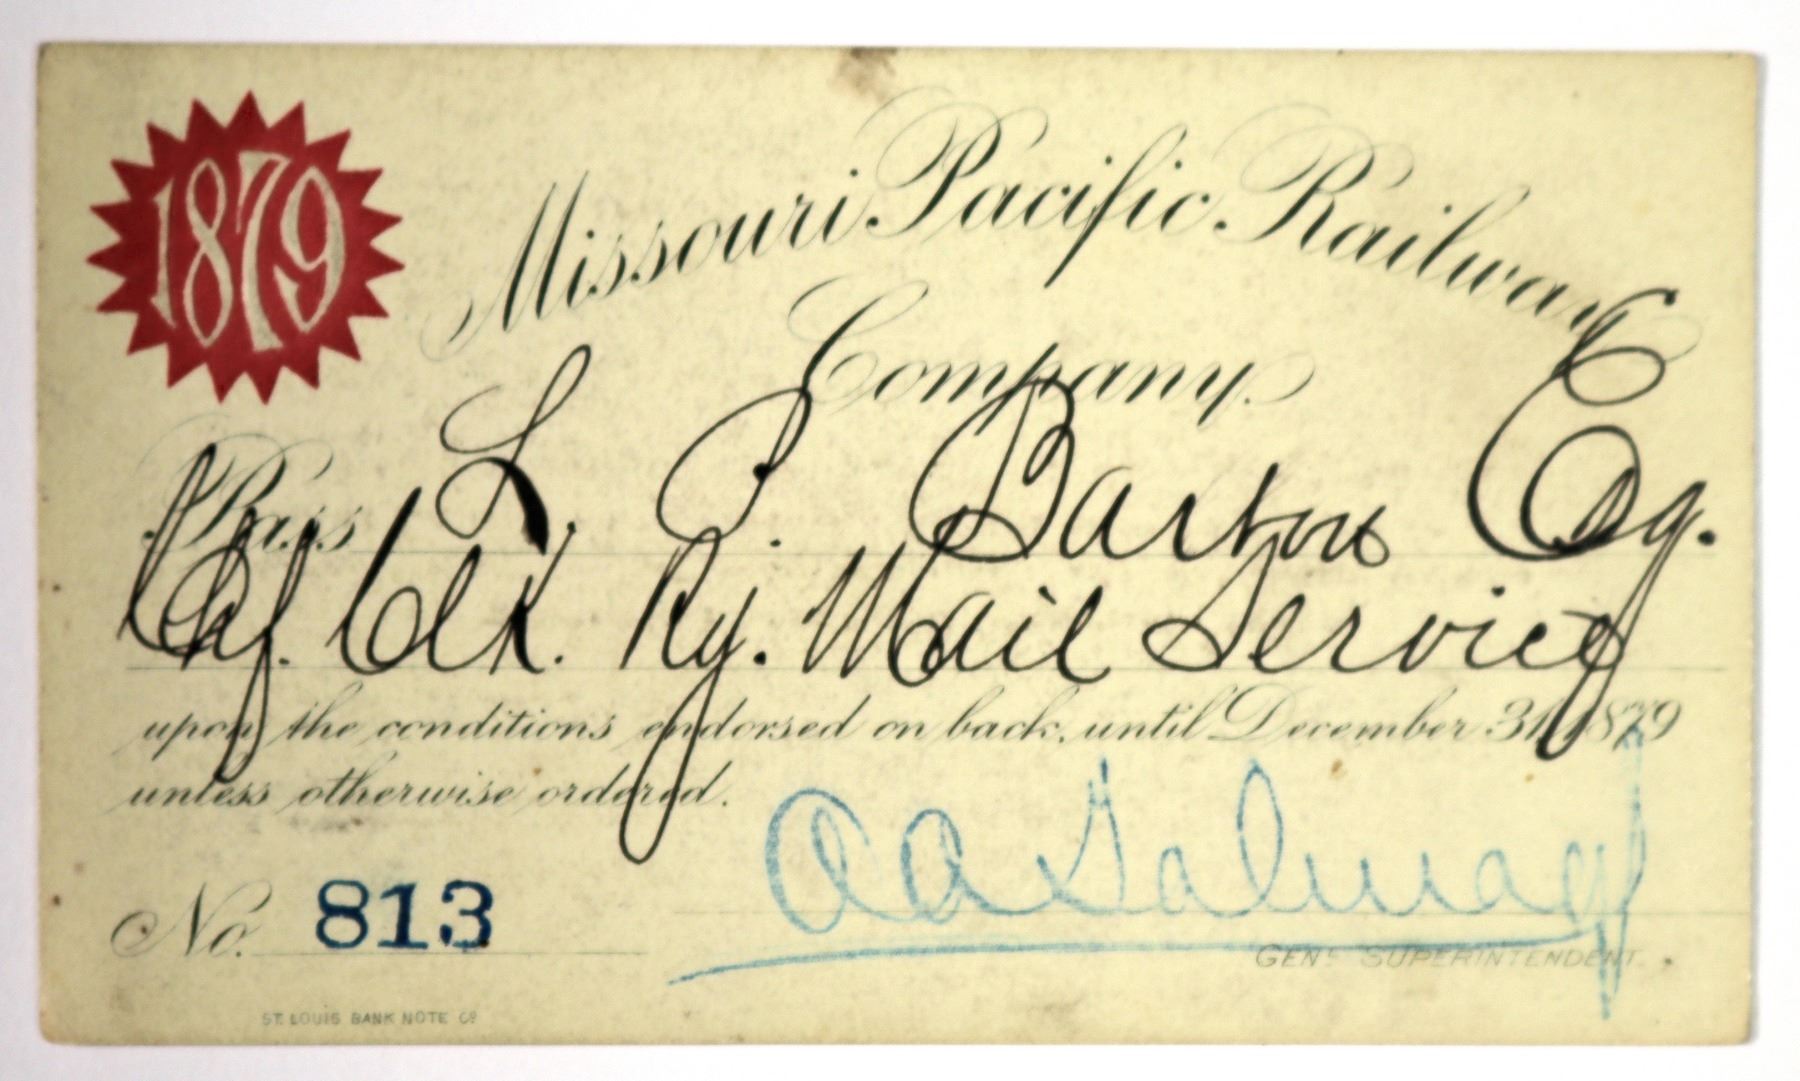 1879
Missouri Pacific Railway
Company.
Pass L. P. Barton Esq.
Chf. Clk. Ry. Mail Service
upon the conditions endorsed on back, until December 31, 1879
unless otherwise ordered.
No. 813
A A Talmage
GENL SUPERINTENDENT.
ST. LOUIS BANK NOTE CO